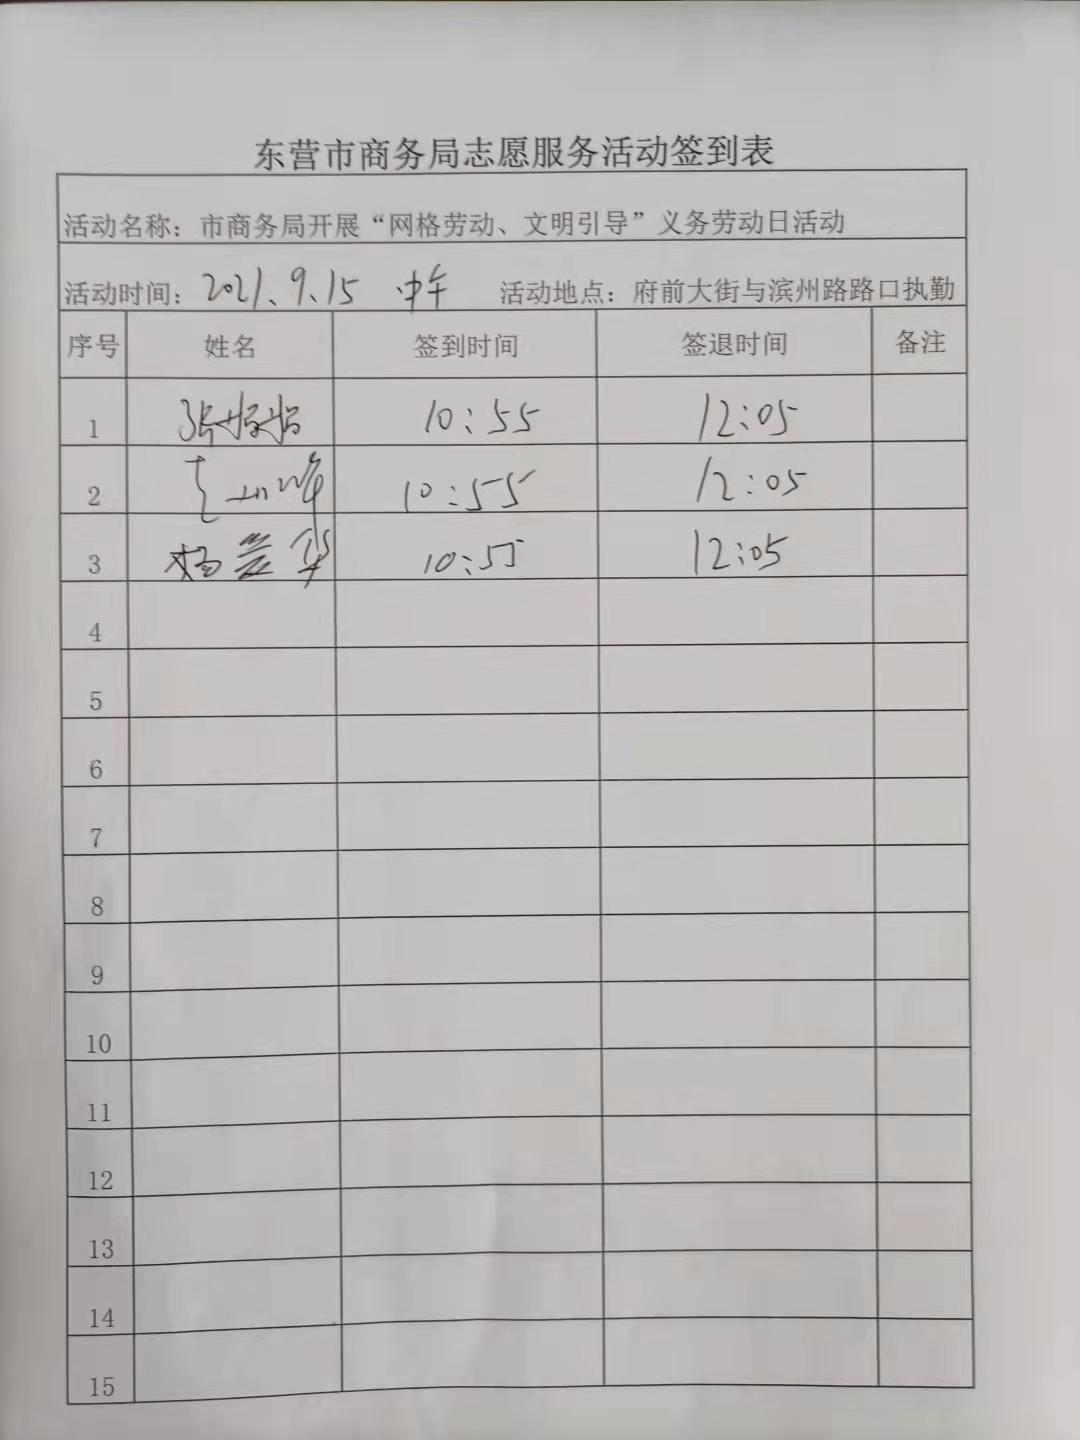 东营市商务局志愿服务活动签到表
活动名称：市商务局开展“网格劳动、文明引导”义务劳动日活动
活动时间：2021、9、15 中午 活动地点：府前大街与滨州路路口执勤
序号 姓名 签到时间 签退时间 备注
1 张 10:55 12:05
2 10:55 12:05
3 杨 华 10:55 12:05
4
5
6
7
8
9
10
11
12
13
14
15